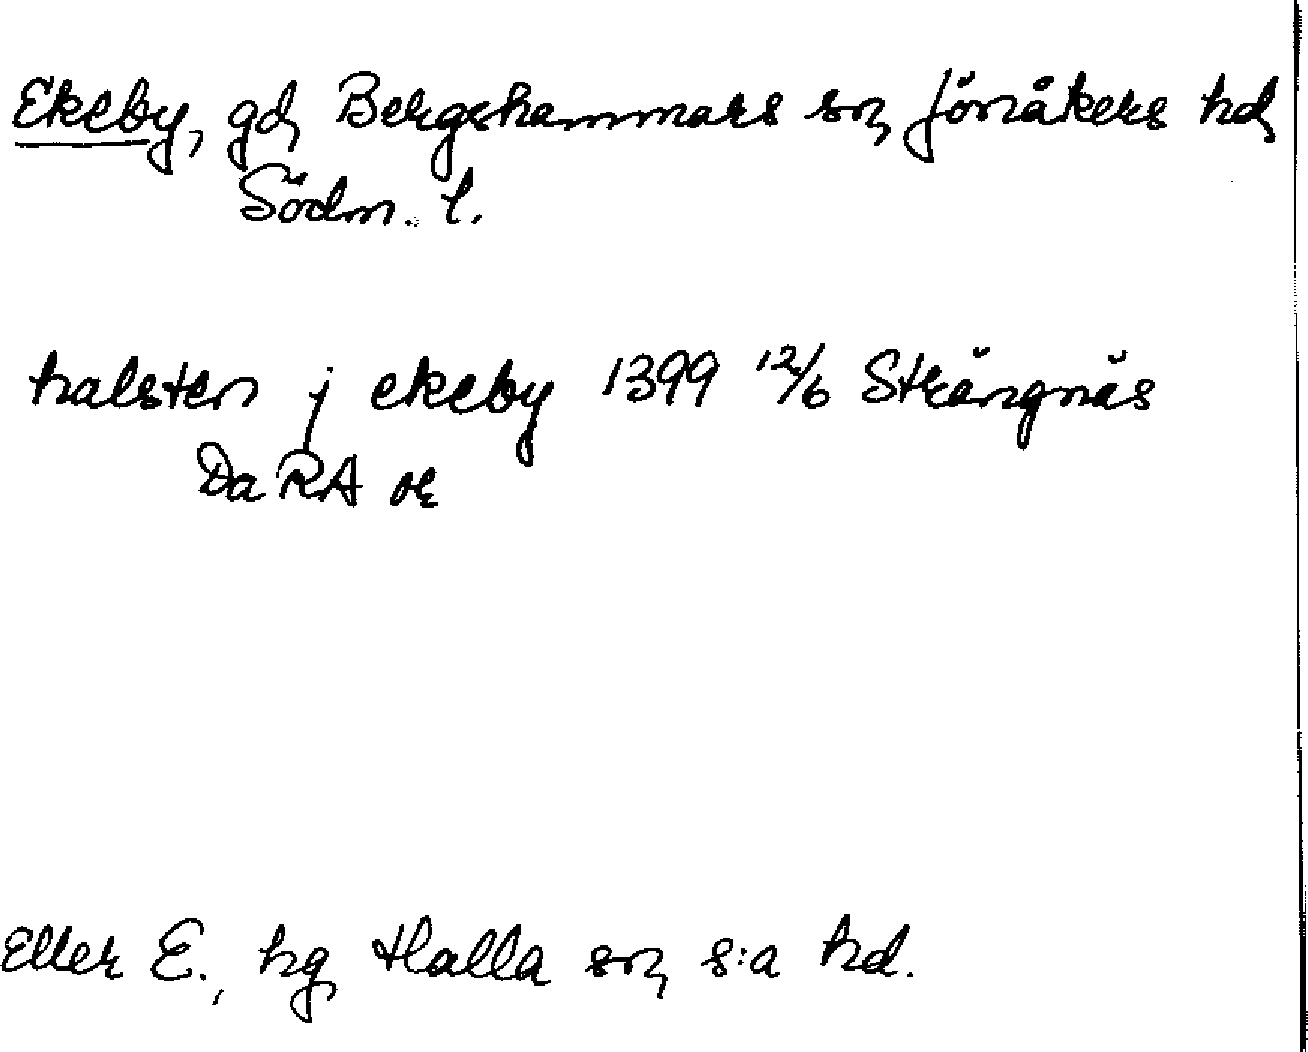 Ekeby, gd, Bergshammars sn, Jönåkers hd,
Södm. l.
halsten j ekeby 1399 12/6 Strängnäs
Da RA or
Eller E., hg Halla sn, s:a hd.